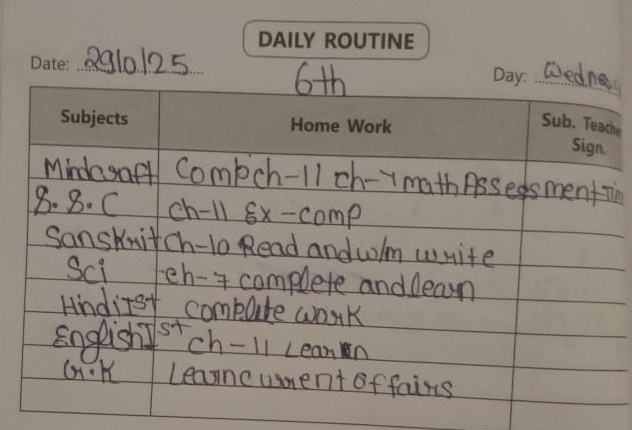 DAILY ROUTINE
Date: 29/0/25 6th Day: Wednes
Subjects Home Work Sub. Teache Sign.
Mindcraft Comp ch-11 ch-7 math Assegsment
S.S.C ch-11 Ex-comp
Sanskrit ch-10 Read and w/m write
Sci ch-7 complete and learn
Hindi Ist complete work
English Ist ch-11 Learn
G.K Learn current affairs